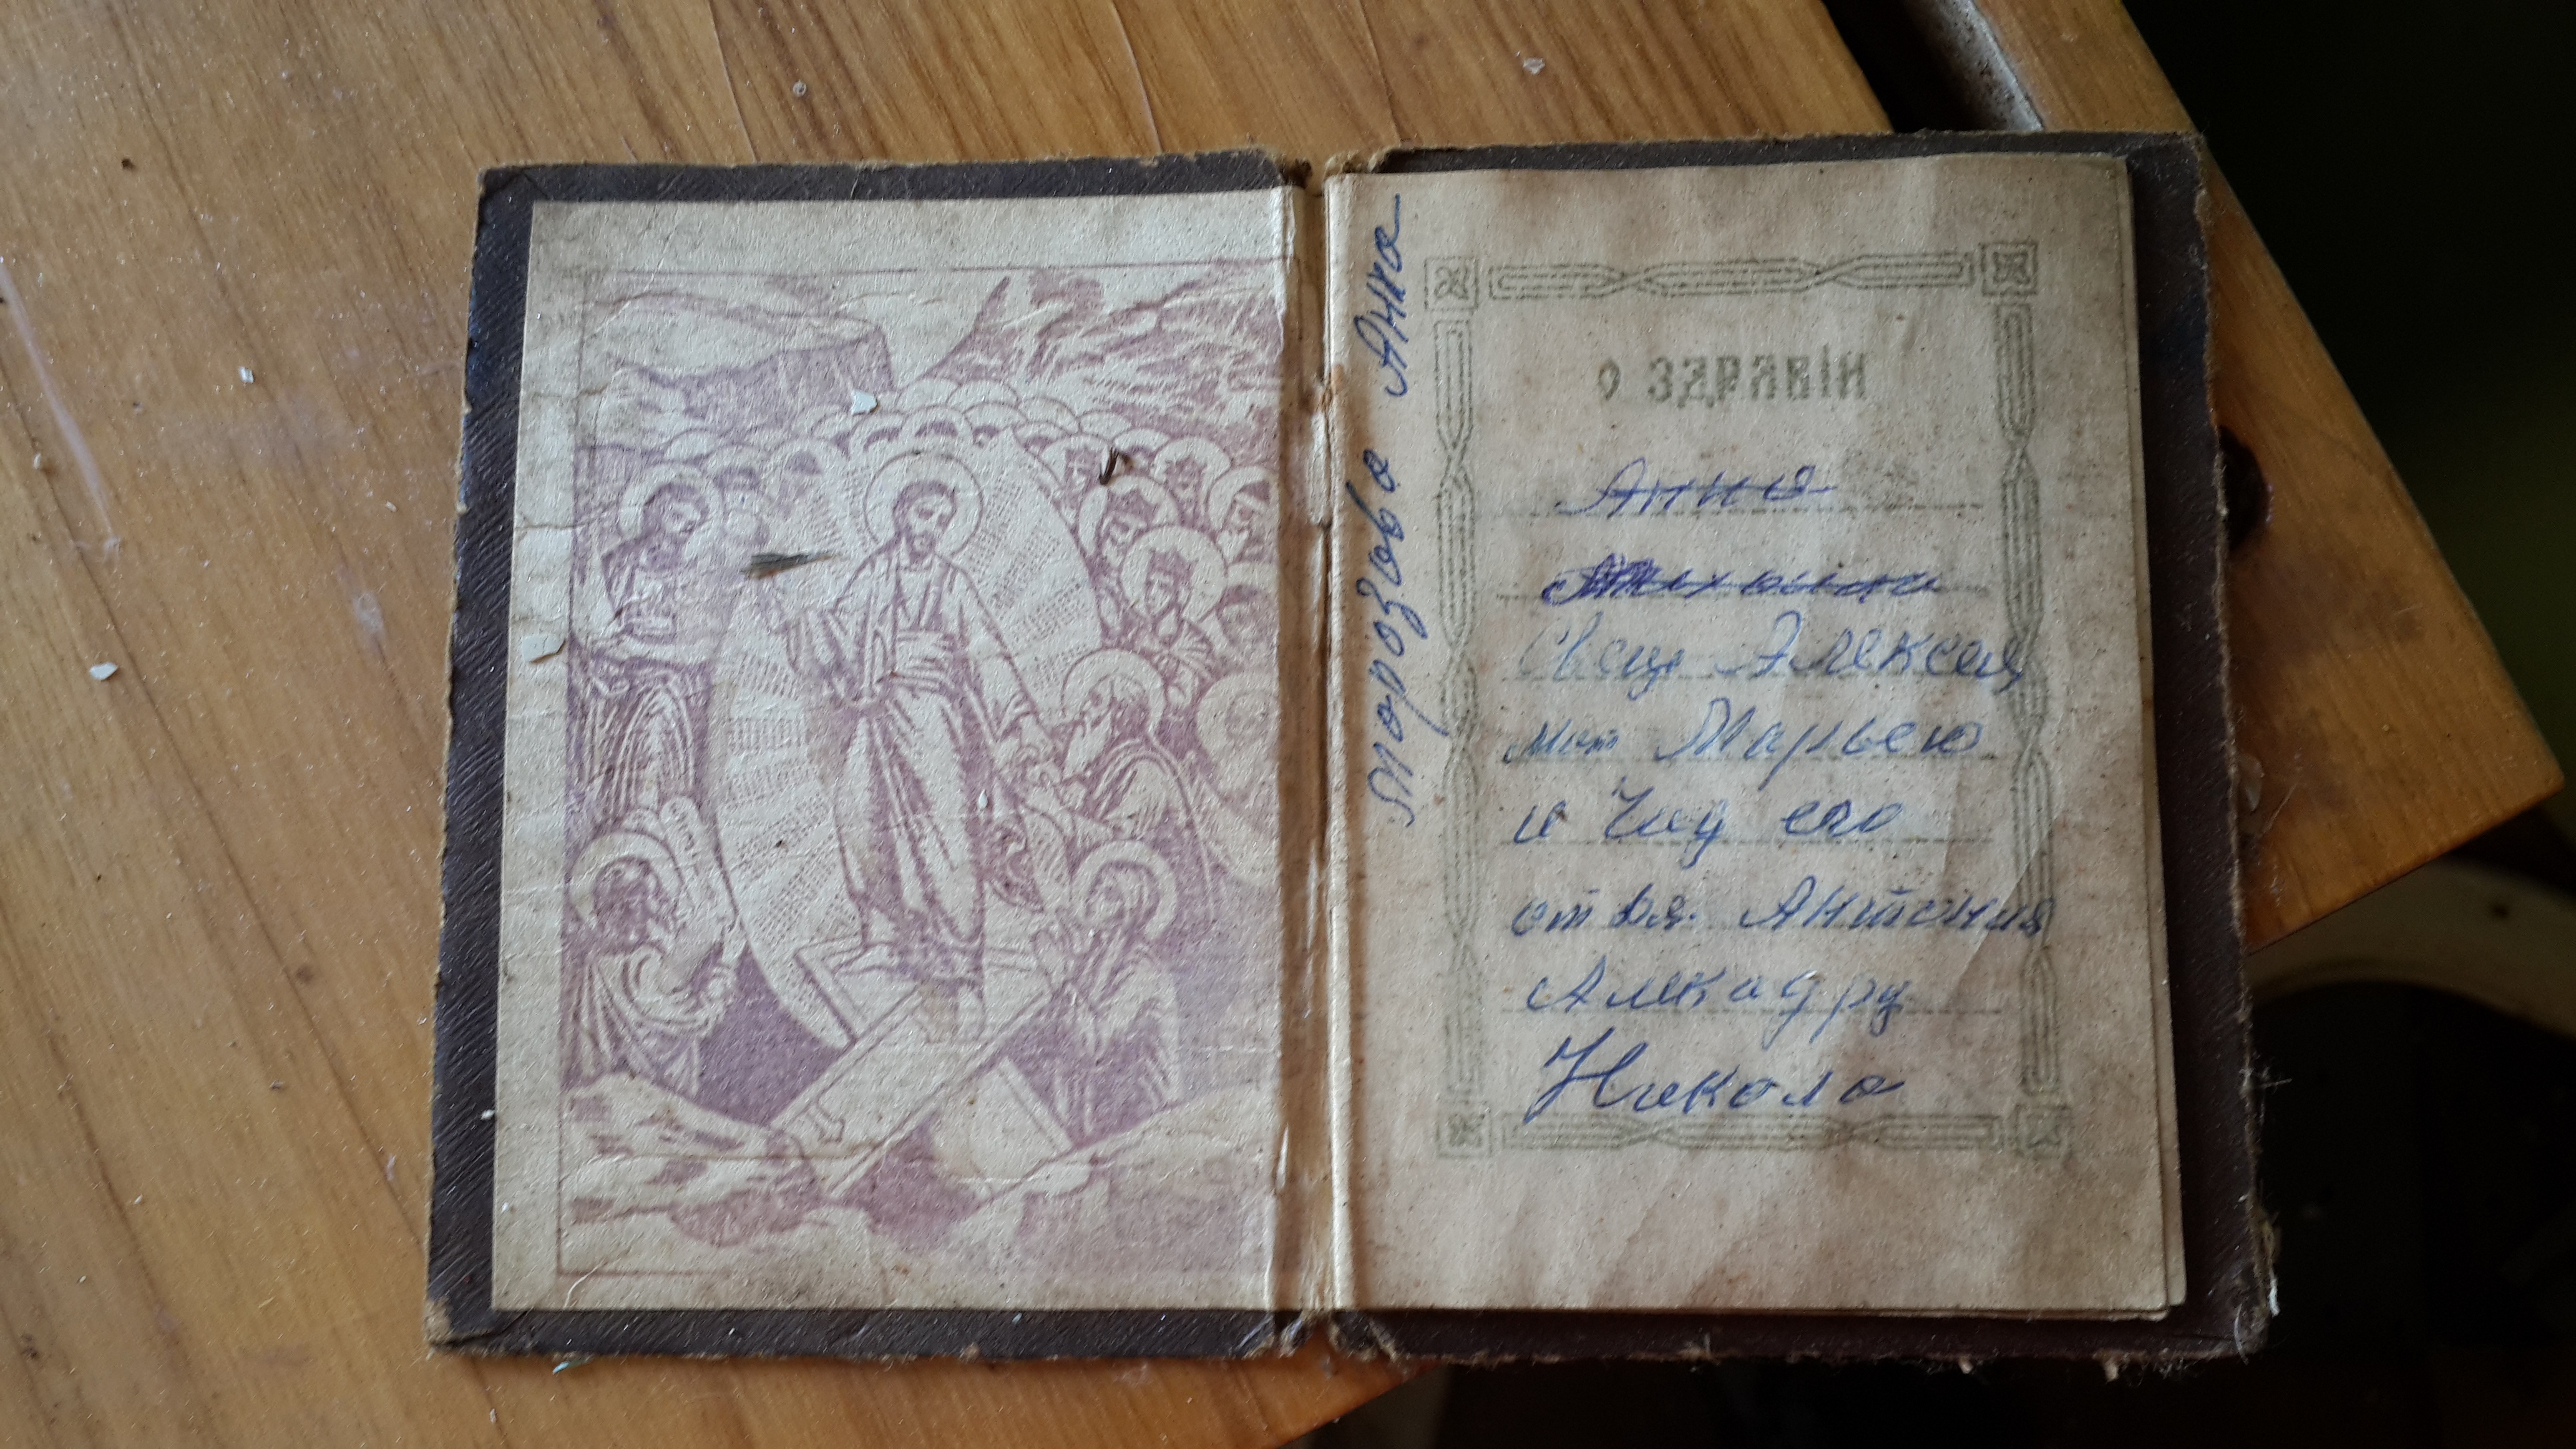 Морозова Анна
О ЗДРАВІИ
Анна
Свящ Алексея
мат Марьею
и Чад его
Антония
Алекадру
Никола